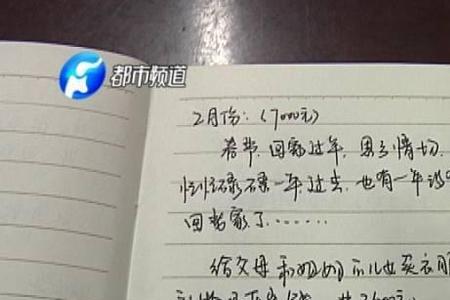 都市频道
2月份：（7000元）
春节，回家过年，思乡情切，
忙忙碌碌一年过去，也有一年没
回老家了……
给父母和姐姐 儿也买衣服